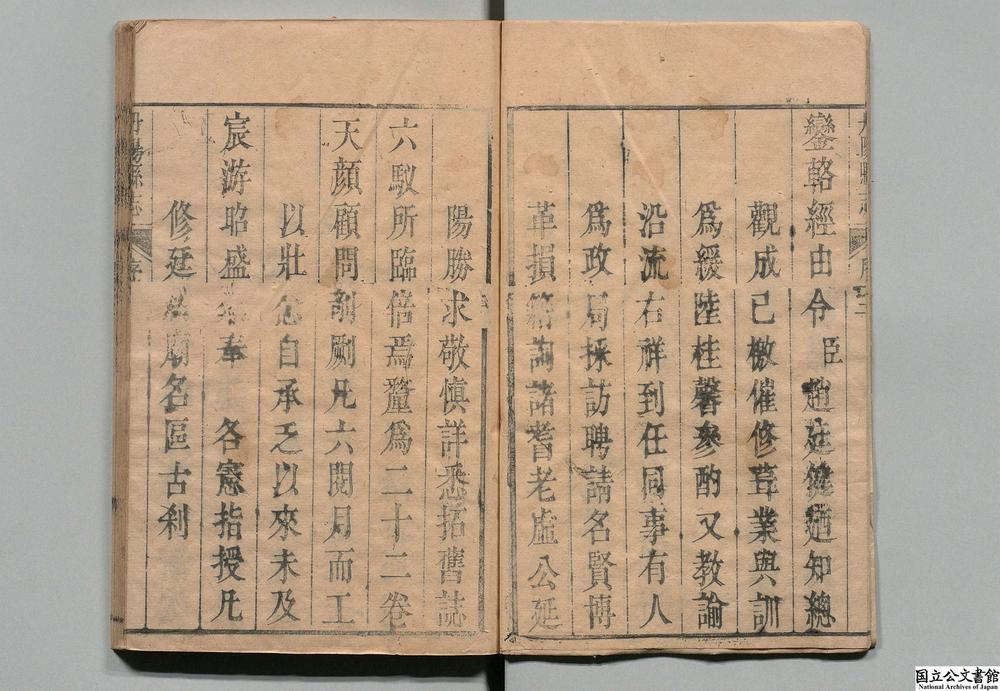 丹陽縣志 序
鑾輅經由令臣趙廷健廼知總
觀成已檄催修葺業與訓
爲緩陸桂馨參酌又教諭
沿流右祥到任同事有人
爲政局採訪聘請名賢博
革損詢諸耆老虛公延
陽勝求敬慎詳悉拓舊誌
六馭所臨倍焉釐爲二十二卷
天顏顧問剞劂凡六閱月而工
以壯自承乏以來未及
宸游昭盛奉 各憲指授凡
修廟名區古刹
丹陽縣志 序
国立公文書館
National Archives of Japan